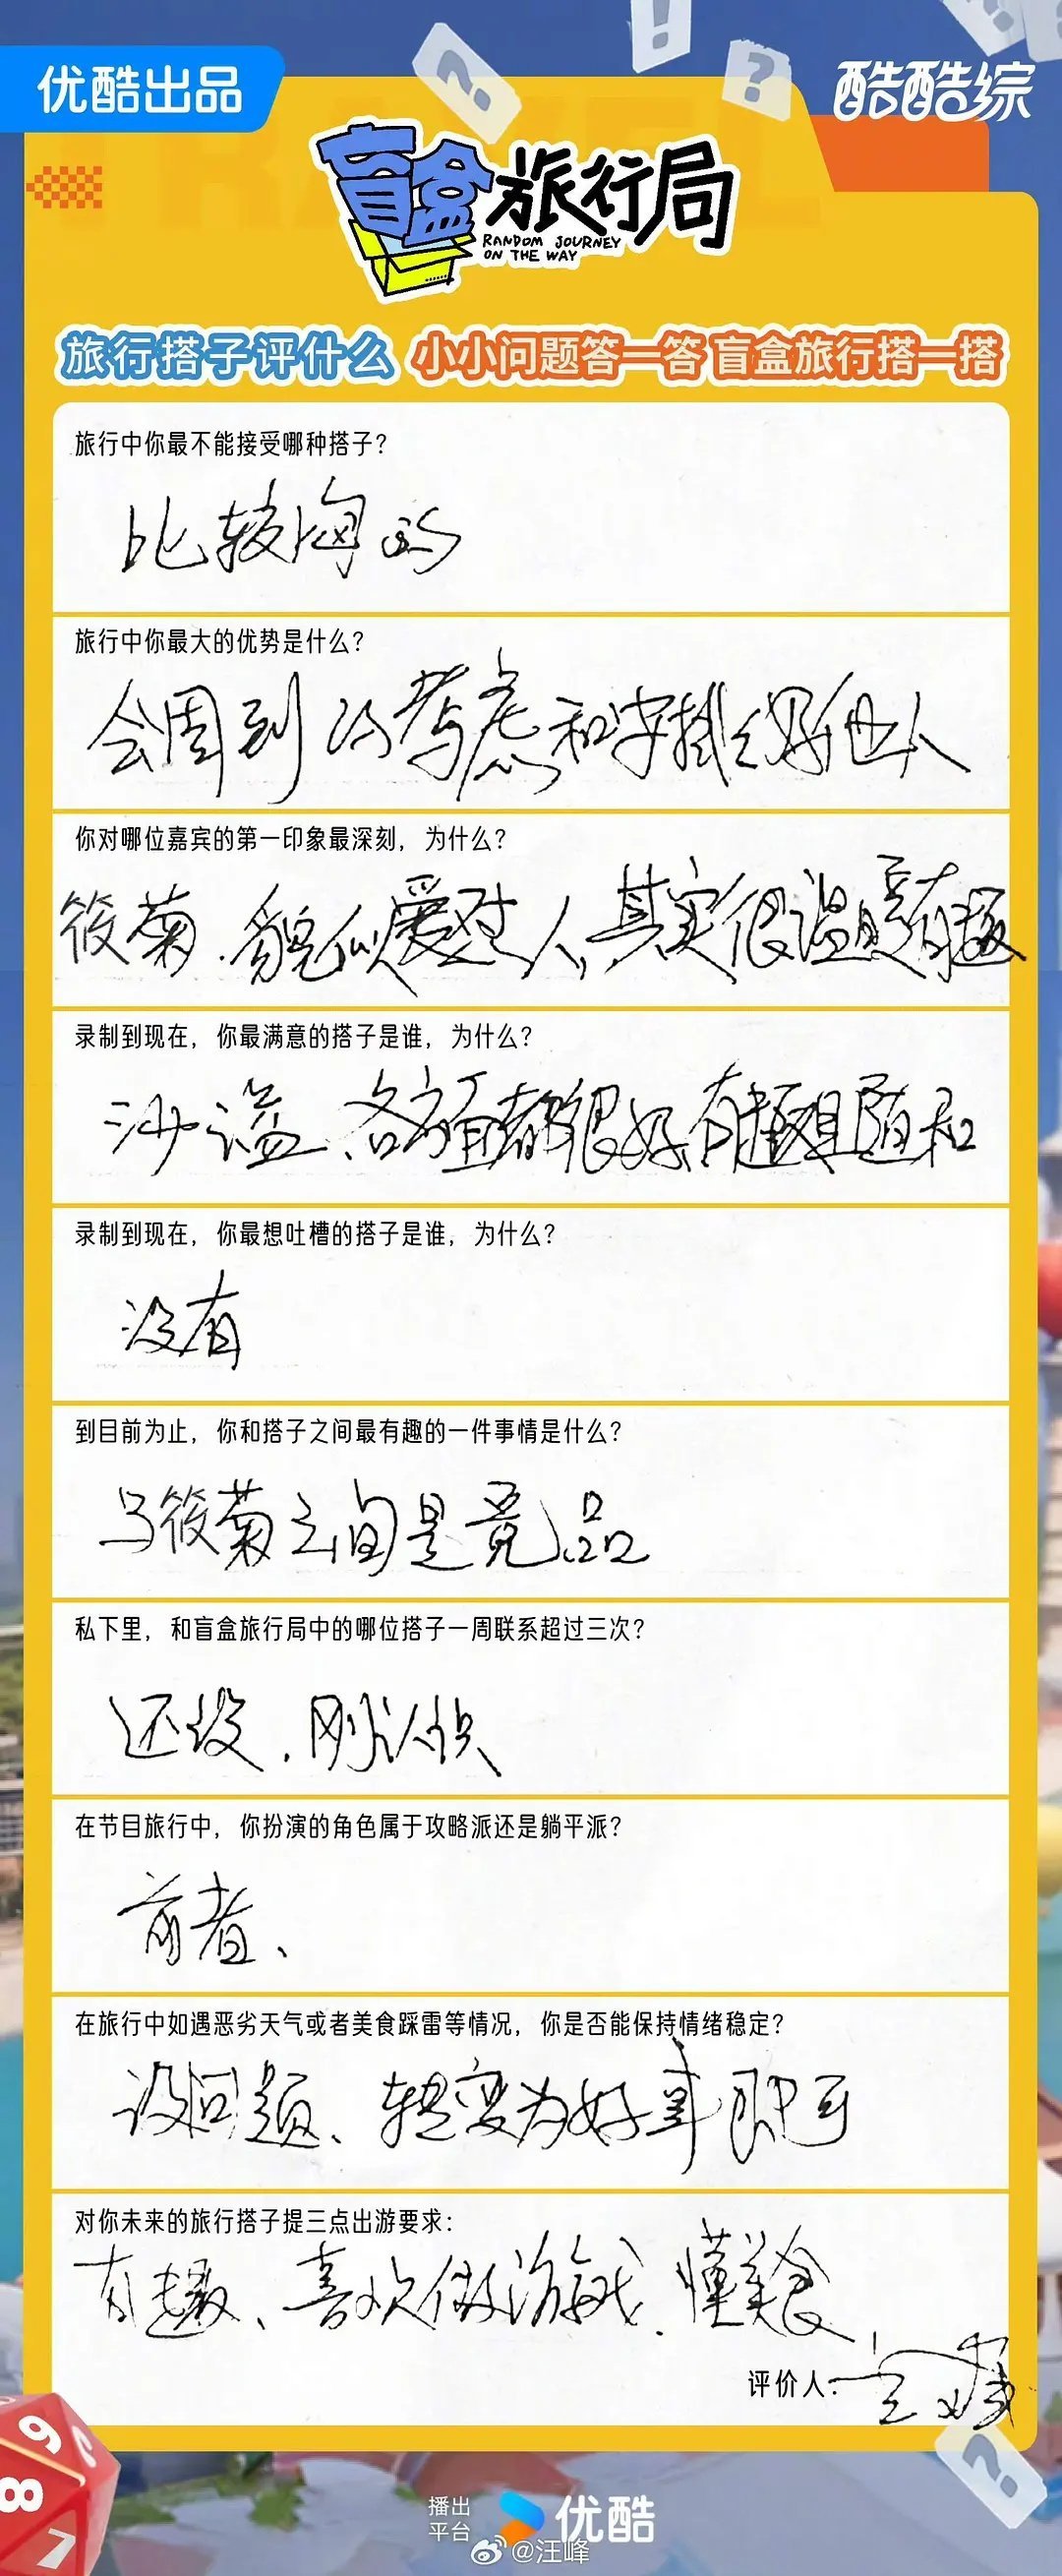 优酷出品
酷酷综
盲盒旅行局
RANDOM JOURNEY
ON THE WAY
旅行搭子评什么 小小问题答一答 盲盒旅行搭一搭
旅行中你最不能接受哪种搭子?
比较海的
旅行中你最大的优势是什么?
会周到的考虑和安排好他人
你对哪位嘉宾的第一印象最深刻，为什么?
筱菊.貌似爱怼人,其实很温暖有趣
录制到现在，你最满意的搭子是谁，为什么?
沙溢、各方面都很好,有趣且随和
录制到现在，你最想吐槽的搭子是谁，为什么?
没有
到目前为止，你和搭子之间最有趣的一件事情是什么?
与筱菊之间是竞品
私下里，和盲盒旅行局中的哪位搭子一周联系超过三次?
还没.刚认识
在节目旅行中，你扮演的角色属于攻略派还是躺平派?
前者、
在旅行中如遇恶劣天气或者美食踩雷等情况，你是否能保持情绪稳定?
没问题、转变为好事即可
对你未来的旅行搭子提三点出游要求:
有趣、喜欢做游戏.懂美食
评价人:
9
8
7
播出
平台
优酷
@汪峰